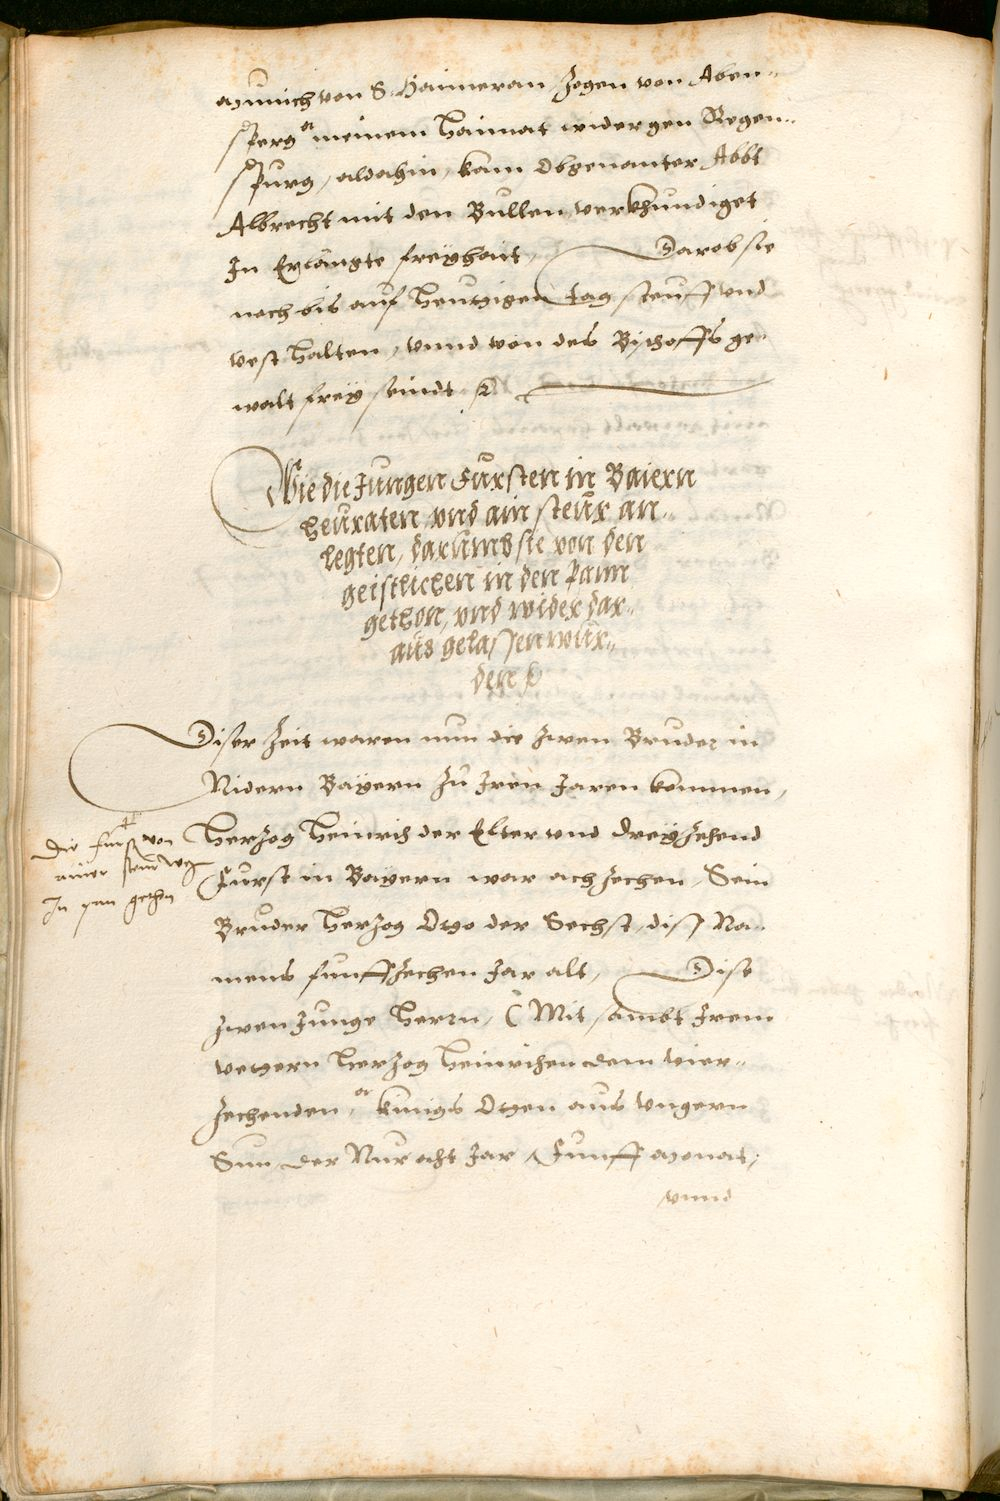 Munnich von S. Haimeran, Zogen von Aben-
sperg meinem Haimat wider gen Regen-
spurg, aldahin, kam Obgenanter Abbt
Albrecht mit den Bullen verkhundiget
In Erlangte freyhait, Darob sie
noch bis auf Heutigen tag steuff und
vest halten, vnnd von des Bischoffs ge-
walt frey seindt
Wie die Jungen Fürsten in Baiern
heuraten, vnd ain steur an-
legten, darumb sie von den
geistlichen in den Pann
gethon, vnd wider dar-
aus gelassen wur-
den
Diser Zeit waren nun die zwen Bruder in
Nidern Bayern Zu Iren Jaren kommen,
Die Furst von
ainer steur weg
In pan gethon
Herzog Heinrich der Elter vnd dreyzehend
Furst in Bayern war achzechen, Sein
Bruder Herzog Otho der Sechst, diss Na-
mens funffzechen Jar alt, Dise
zwen Junge Herrn, (Mit sambt Irem
vetern Herzog Heinrichen dem vier-
zechenden, kunigs Othen aus Vngern
Sun, der Nur acht Jar, Funff Monat,
vnnd